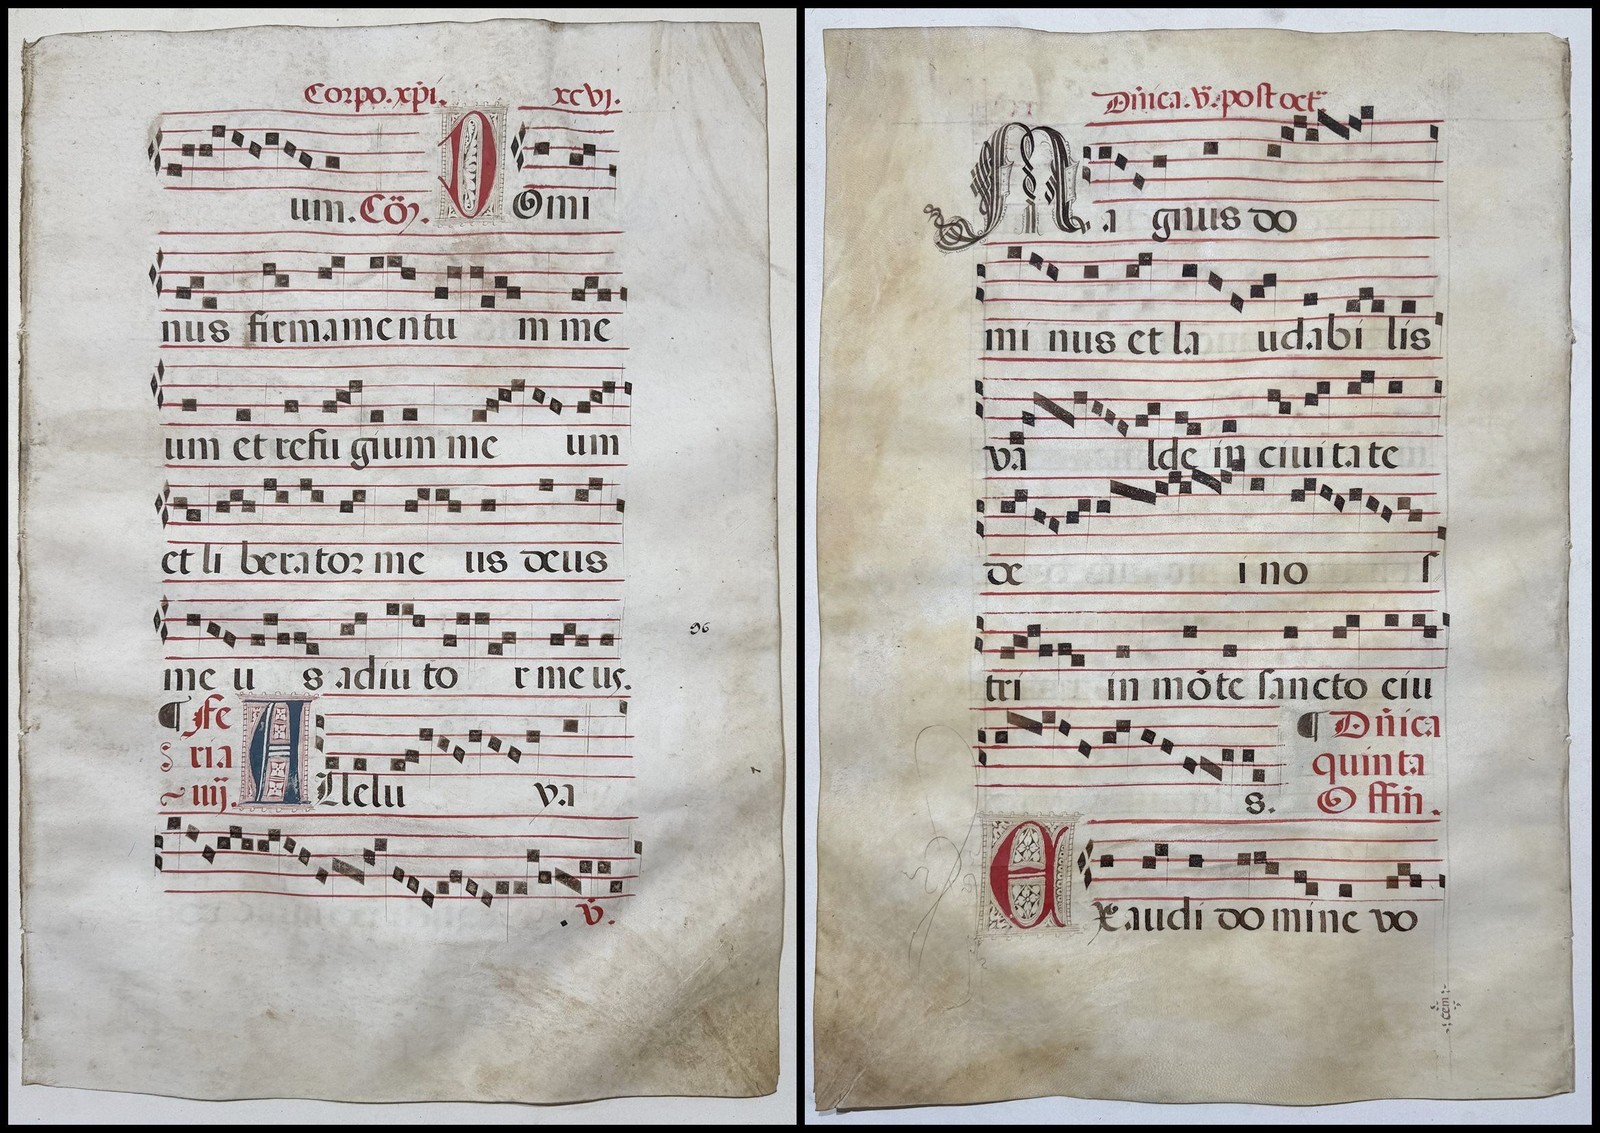 Corpo. xpi. xcvj.
um. Cō. D Omi
nus firmamentu m me
um et refu gium me um
et li berator me us deus
me u s adiu to r me us.
96
¶ Fe
ria
iiij. A Llelu ya
. v̄.
Dn̄ica. v̄. post oct.
M a gnus do
mi nus et la udabi lis
va lde in ciuitate
de i no s
tri in mōte sancto ciu
¶ Dn̄ica
quinta
s. Offm̄.
E Xaudi domine vo
cem